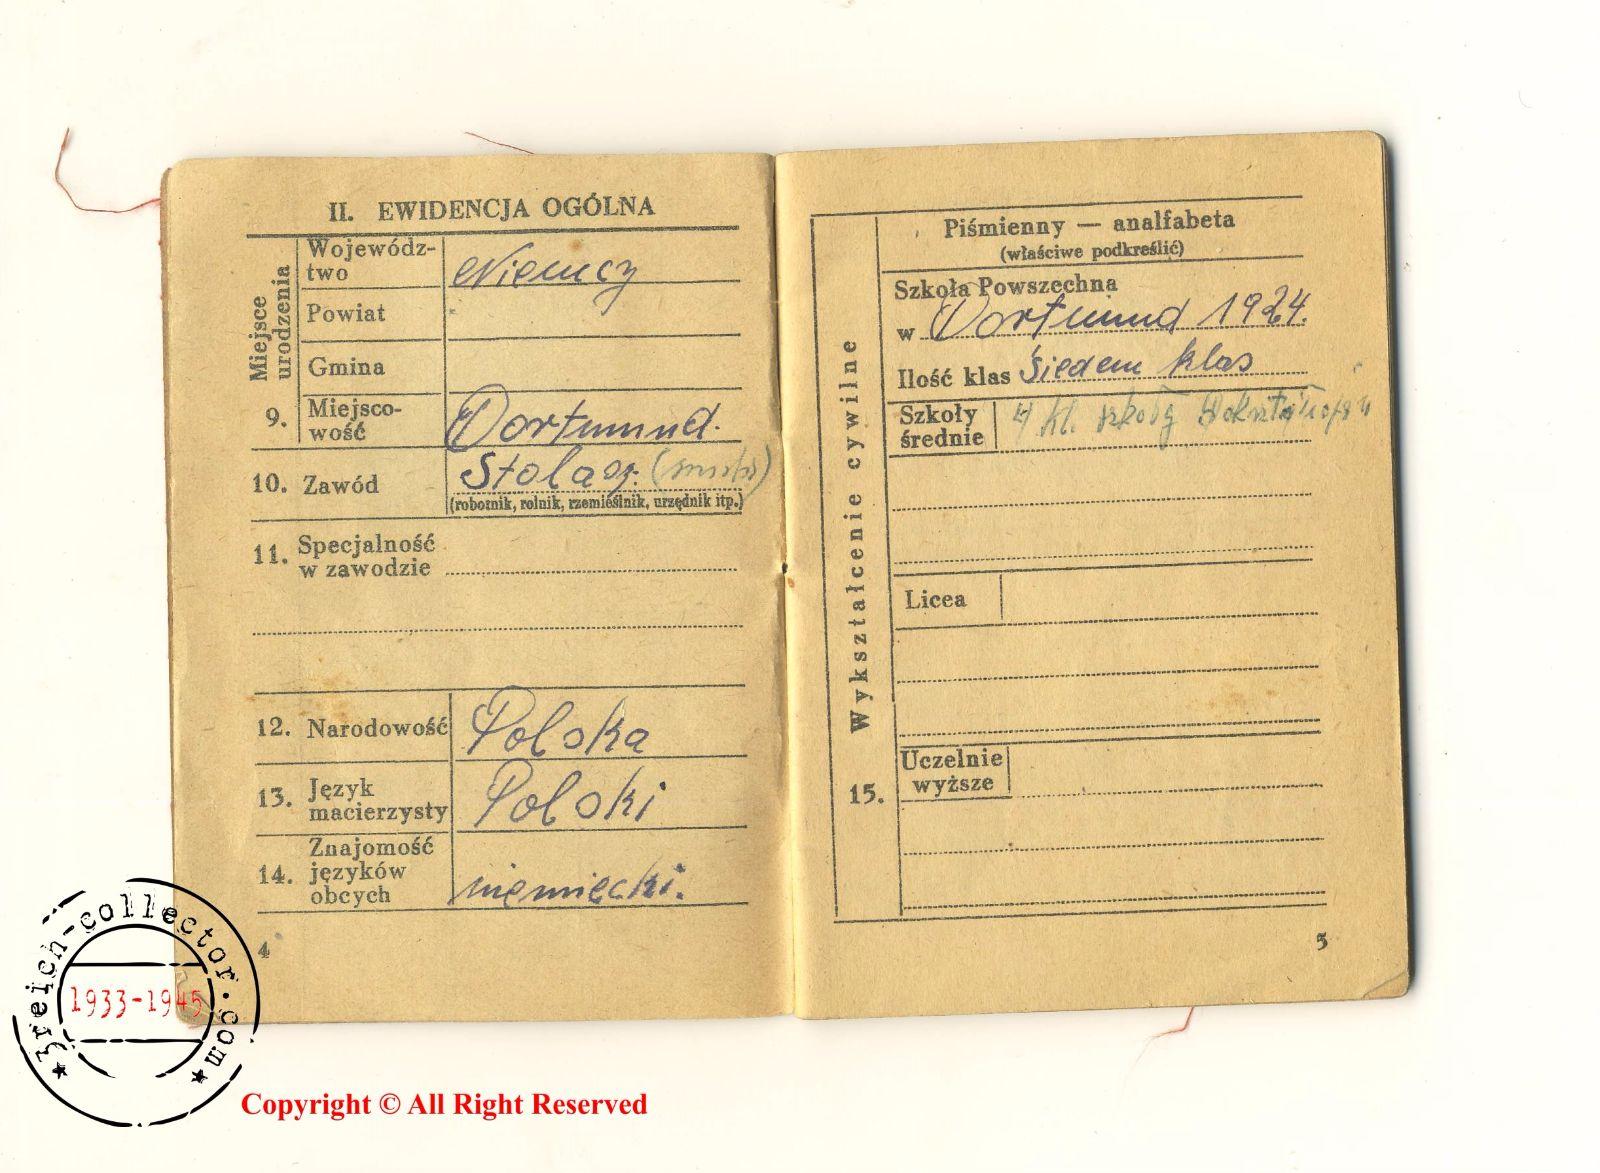 II. EWIDENCJA OGÓLNA
Miejsce urodzenia
Wojewódz-
two Niemcy
Powiat
Gmina
9. Miejsco-
wość Dortmund.
10. Zawód Stolarz.
(robotnik, rolnik, rzemieślnik, urzędnik itp.)
11. Specjalność
w zawodzie
12. Narodowość Polska
13. Język
macierzysty Polski
14. Znajomość
języków
obcych niemiecki.
4
Piśmienny — analfabeta
(właściwe podkreślić)
Szkoła Powszechna
w Dortmund 1924.
Ilość klas Siedem klas
Szkoły
średnie 4 kl. szkoły
Licea
Uczelnie
wyższe
15. Wykształcenie cywilne
5
3reich-collector.com
1933-1945
Copyright © All Right Reserved